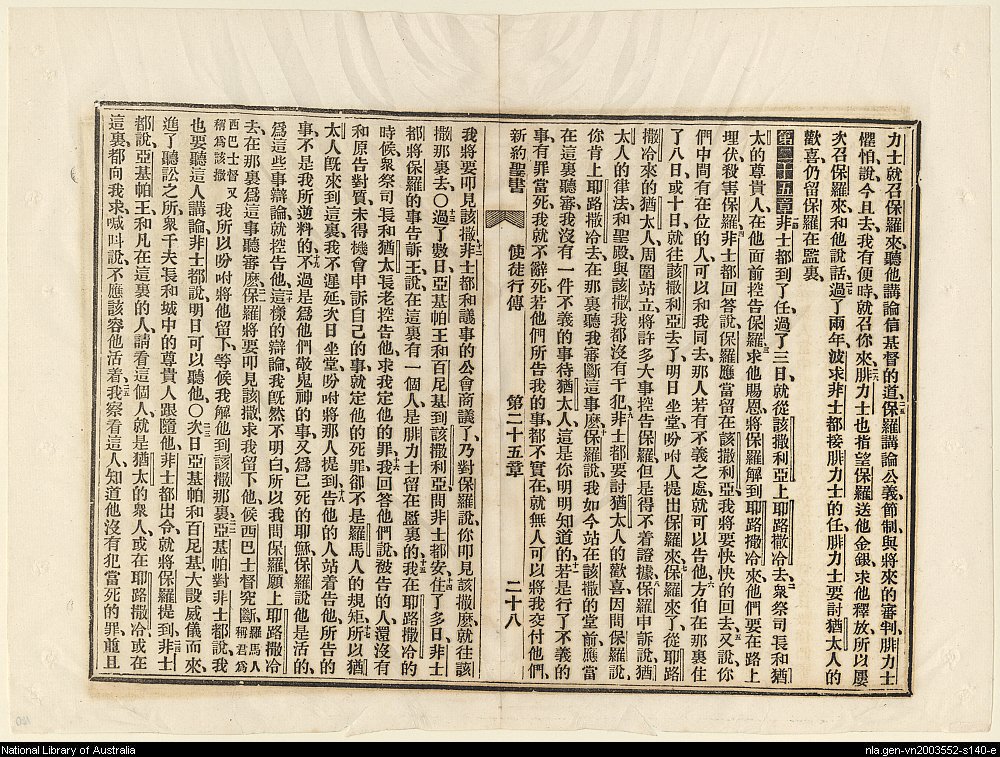 力士就召保羅來、聽他講論信基督的道、保羅講論公義、節制、與將來的審判、腓力士
懼怕、說、今且去、我有便時、就召你來、腓力士也指望保羅送他金銀、求他釋放、所以屢
次召保羅來、和他說話、過了兩年、波求非士都接腓力士的任、腓力士要討猶太人的
歡喜、仍留保羅在監裏、
第二十五章非士都到了任、過了三日、就從該撒利亞上耶路撒冷去、衆祭司長和猶
太的尊貴人、在他面前控告保羅、求他賜恩、將保羅解到耶路撒冷來、他們要在路上
埋伏殺害保羅、非士都回答說、保羅應當留在該撒利亞、我將要快快的回去、又說、你
們中間有在位的人、可以和我同去、那人若有不義之處、就可以告他、方伯在那裏住
了八日、或十日、就往該撒利亞去了、明日坐堂、吩咐人提出保羅來、保羅來了、從耶路
撒冷來的猶太人周圍站立、將許多大事控告保羅、但是得不着證據、保羅申訴說、猶
太人的律法、和聖殿、與該撒、我都沒有干犯、非士都要討猶太人的歡喜、因問保羅說、
你肯上耶路撒冷去、在那裏聽我審斷這事麼、保羅說、我如今站在該撒的堂前、應當
在這裏聽審、我沒有一件不義的事待猶太人、這是你明明知道的、若是行了不義的
事、有罪當死、我就不辭死、若他們所告我的事都不實在、就無人可以將我交付他們、
新約聖書 使徒行傳 第二十五章 二十八
我將要叩見該撒、非士都和議事的公會商議了、乃對保羅說、你叩見該撒麼、就往該
撒那裏去、○過了數日、亞基帕王和百尼基到該撒利亞問非士都安、住了多日、非士
都將保羅的事告訴王、說、在這裏有一個人、是腓力士留在監裏的、我在耶路撒冷的
時候、衆祭司長和猶太長老控告他、求我定他的罪、我回答他們說、被告的人還沒有
和原告對質、未得機會申訴自己的事、就定他的死罪、卻不是羅馬人的規矩、所以猶
太人旣來到這裏、我不遲延、次日坐堂、吩咐將那人提到、告他的人站着告他、所告的
事、不是我所逆料的、不過是爲他們敬鬼神的事、又爲已死的耶穌、保羅說他是活的、
爲這些事辯論、就控告他、這樣的辯論、我旣然不明白、所以我問保羅願上耶路撒冷
去、在那裏爲這事聽審麼、保羅將要叩見該撒、求我留下他、候西巴士督究斷、羅馬人稱君爲
西巴士督又稱爲該撒我所以吩咐將他留下、等候我解他到該撒那裏、亞基帕對非士都說、我
也要聽這人講論、非士都說、明日可以聽他、○次日亞基帕和百尼基大設威儀而來、
進了聽訟之所、衆千夫長和城中的尊貴人跟隨他、非士都出令、就將保羅提到、非士
都說、亞基帕王和凡在這裏的人、請看這個人、就是猶太的衆人、或在耶路撒冷、或在
這裏、都向我求、喊叫說、不應該容他活着、我察看這人、知道他沒有犯當死的罪、並且
National Library of Australia
nla.gen-vn2003552-s140-e